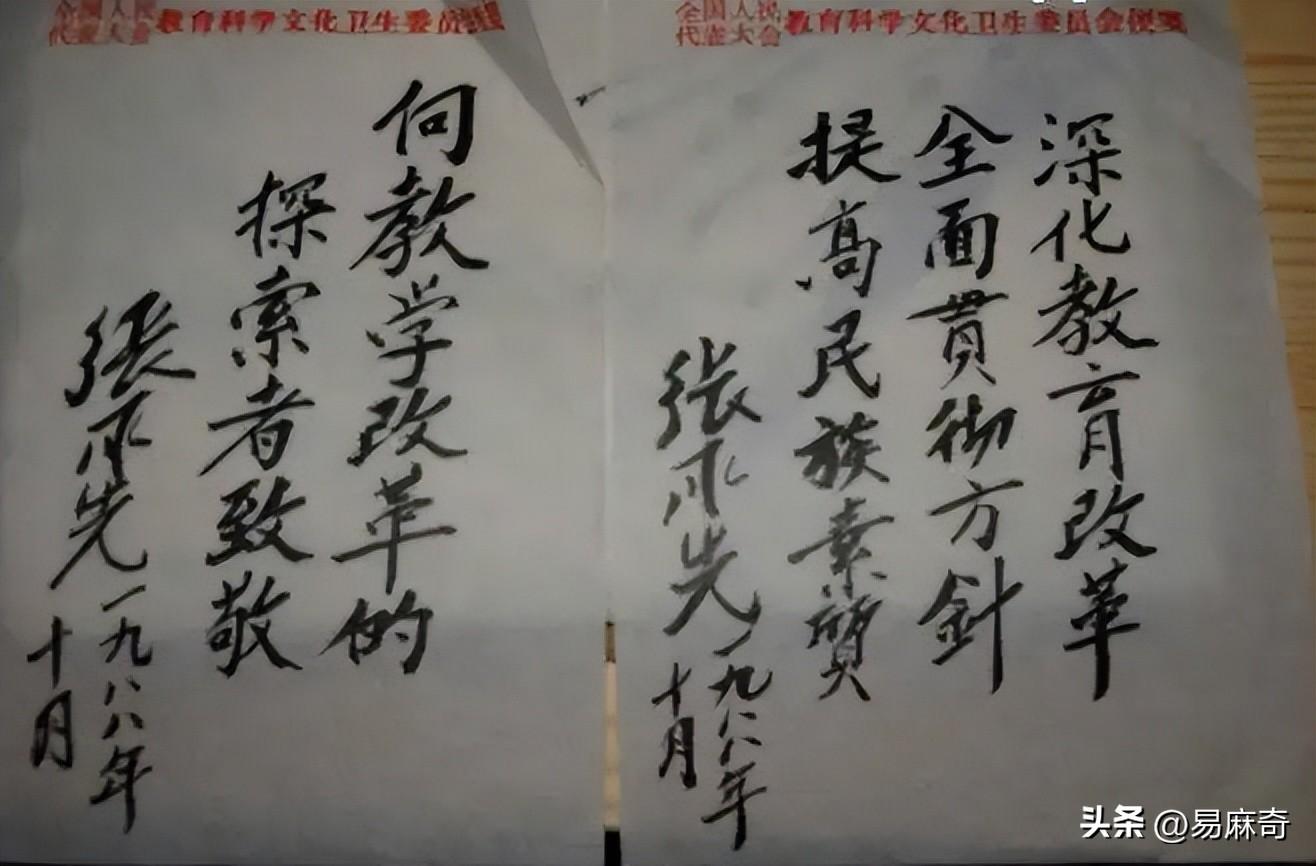 全国人民
代表大会
教育科学文化卫生委员会便笺
深化教育改革
全面貫彻方針
提高民族素質
张承先
一九八八年
十月
全国人民
代表大会
教育科学文化卫生委员
向教学改革的
探索者致敬
張承先
一九八八年
十月
头条 @易麻奇